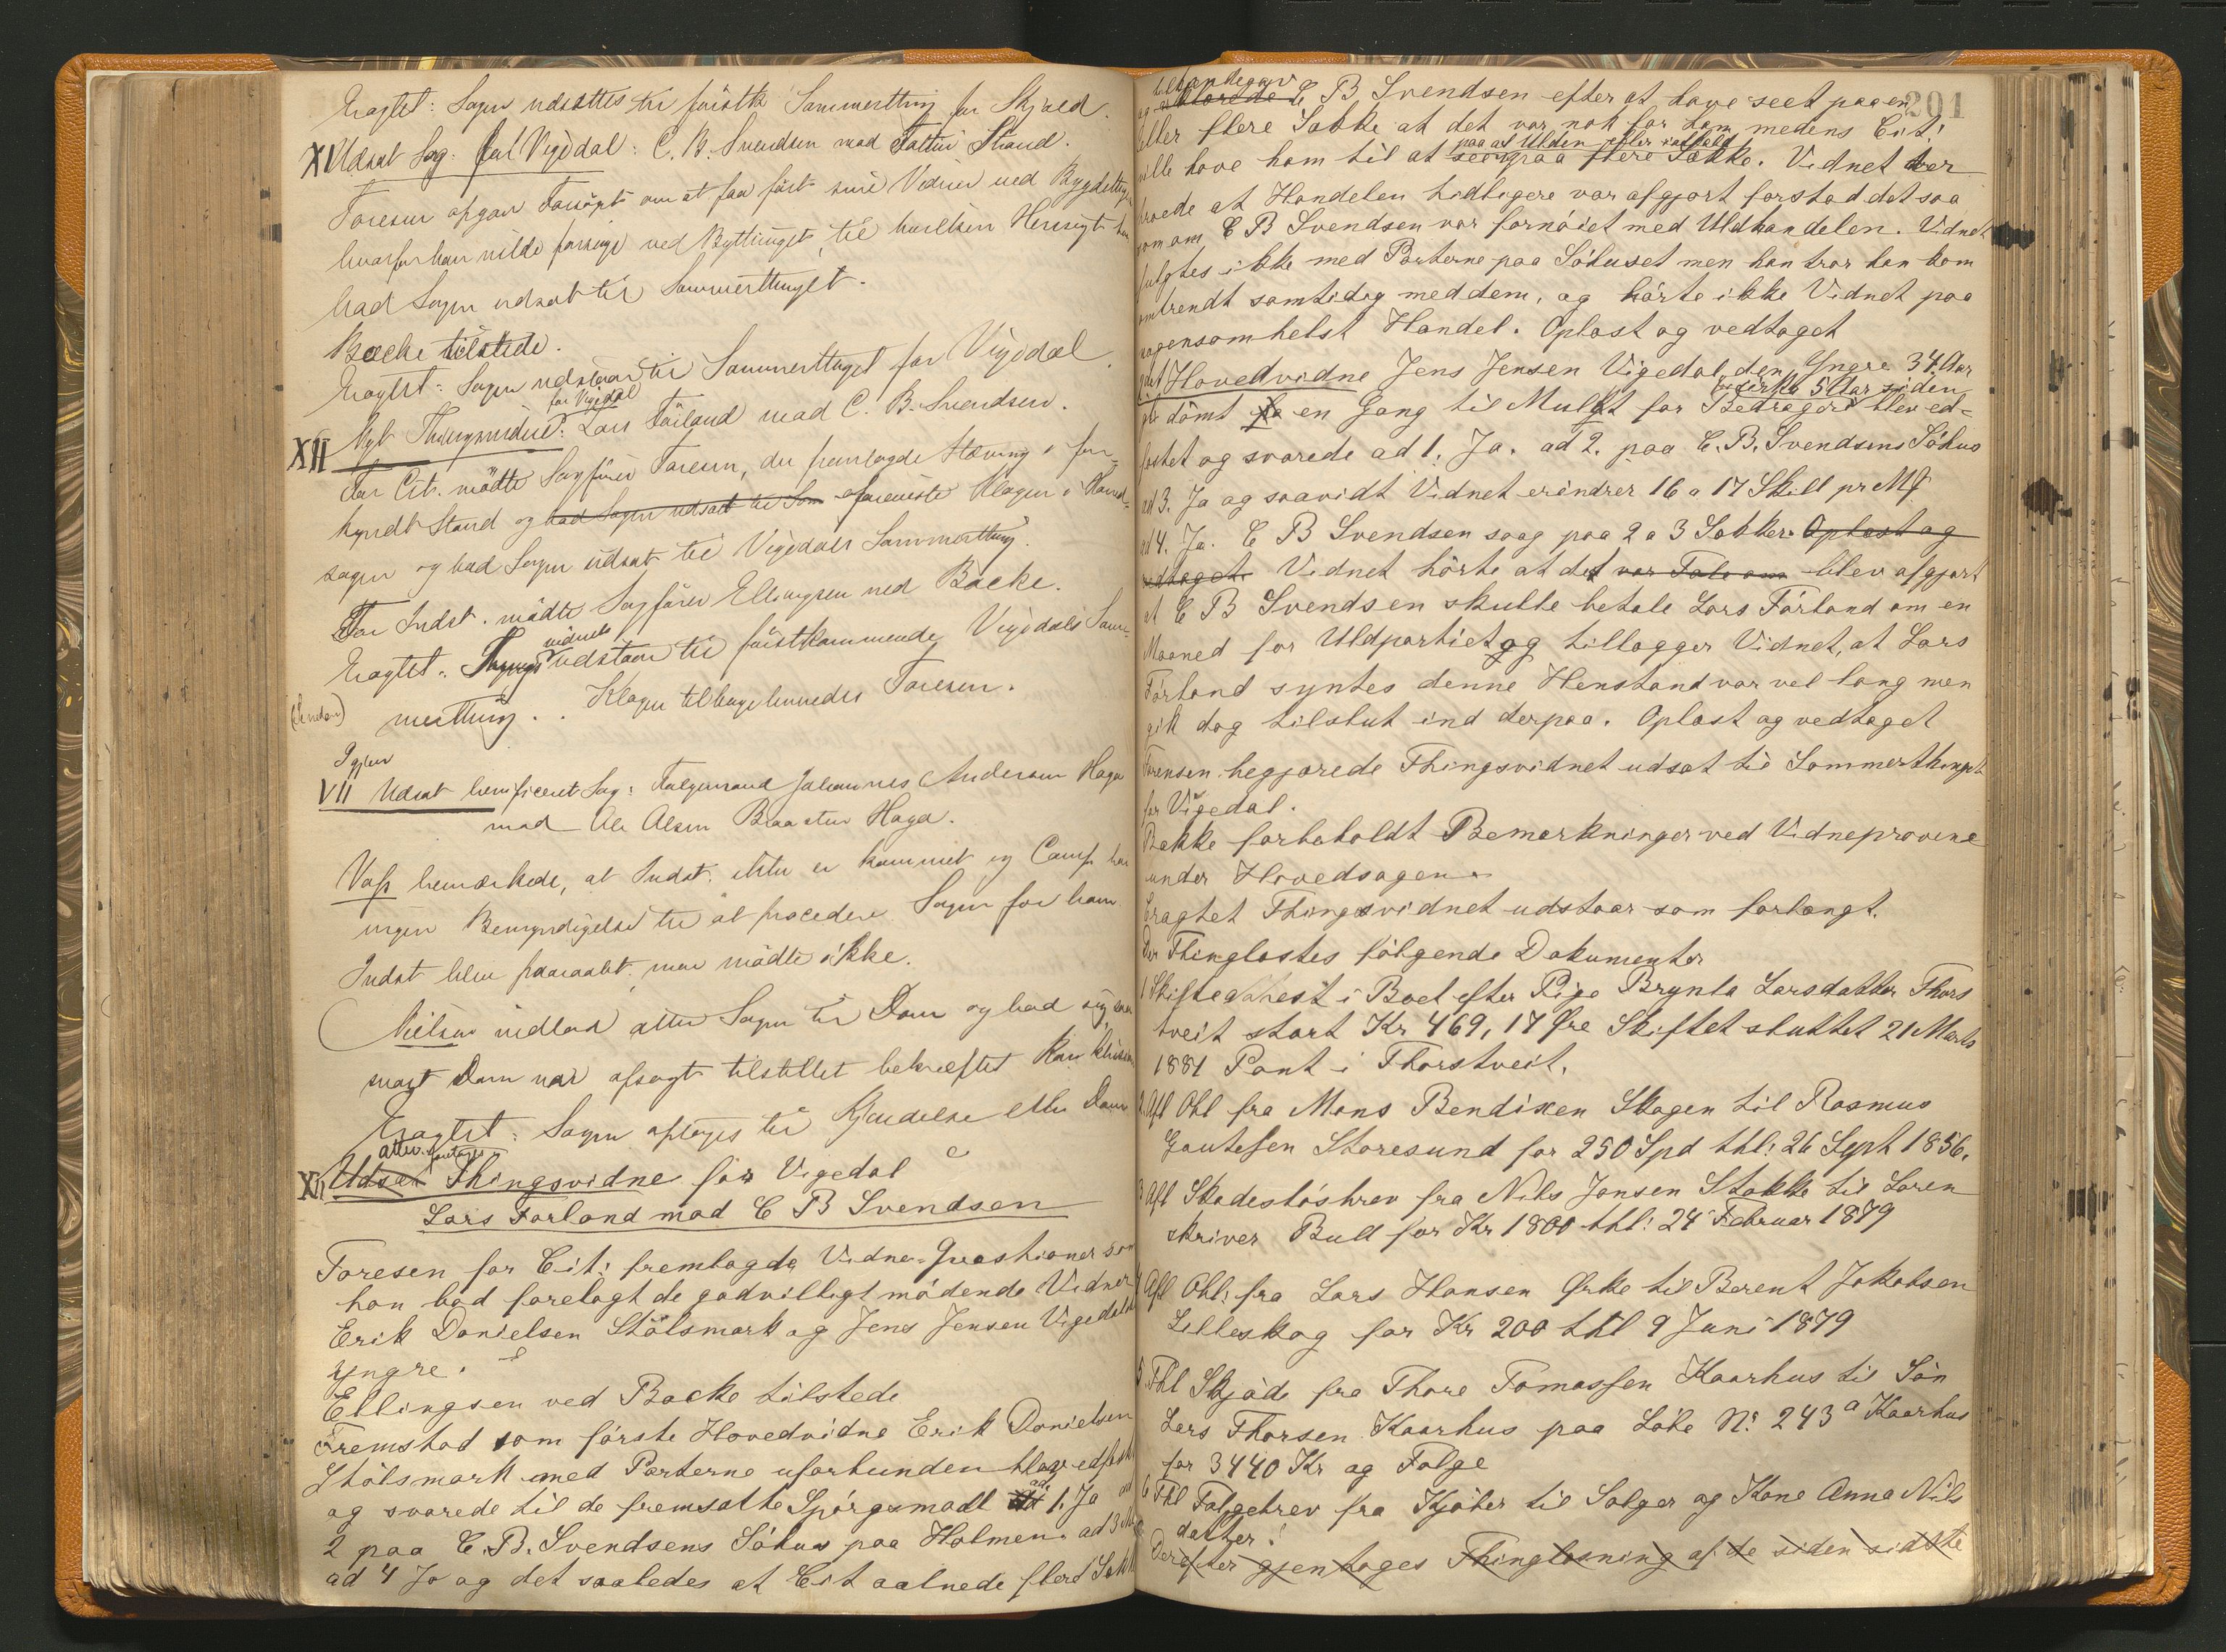 Eragtet: Sagen udsættes til første Sommerthing for Skjold.
XI Udsat Sag: fra Vigedal: C. B. Svendsen mod Strand.
Foresen opgav Forsøgt om at faa ført sine Vidner ved Bygdething
hvorfor han vilde forsøge ved Bythinget, til hvilken Hensigt han
bad Sagen udsat til Sommerthinget.
Backe tilstede.
Eragtet: Sagen udstaar til Sommerthinget for Vigedal
for Vigedal
XII Nyt Thingsvidne: Lars Førland mod C. B. Svendsen.
For Cit. mødte Sagfører Foresen, der fremlagde Stævning i for-
kyndt Stand og bad Sagen udsat til Som afæskede Klagen i Hoved-
sagen og bad Sagen udsat til Vigedals Sommerthing.
For Indst. mødte Sagfører Ellingsen ved Backe.
vidnet
Eragtet: Things udstaar til førstkommende Vigedals Som-
merthing. . Klagen tilbageleveredes Foresen.
Igjen
VII Udsat beneficeret Sag: Følgemand Johannes Andersen Haga
mod Ole Olsen Braaten Haga.
Vass bemærkede, at Indst. ikke er kommet og Comp har
ingen Bemyndigelse til at procedere Sagen for ham.
Indst blev paaraabt men mødte ikke.
Nielsen indlod atter Sagen til Dom og bad sig naar
Dom var afsagt tilstillet bekræftet
Eragtet: Sagen optages til Kjendelse eller Dom
atter foretages
XII Udsat Thingsvidne for Vigedal
Lars Førland mod C B Svendsen
Foresen for Cit: fremlagde Vidne-Qvæstioner som
han bad forelagt de godvilligt mødende Vidner
Erik Danielsen Stølsmark og Jens Jensen Vigedal
yngre.
Ellingsen ved Backe tilstede
Fremstod som første Hovedvidne Erik Danielsen
Stølsmark med Parterne uforbunden blev edfæstet
og svarede til de fremsatte Spørgsmaal ad 1. Ja ad
2 paa C. B. Svendsens Søhus paa Holmen. ad 3
ad 4 Ja og det saaledes at Cit aabnede flere Sække
201
tilkjendegav
og svarede C B Svendsen efter at have seet paa en
eller flere Sække at det var nok for ham medens Cit:
paa al Ulden eller i alfald
vilde have ham til at see paa flere Sække. Vidnet der
troede at Handelen tidligere var afgjort forstod det saa
som om C B Svendsen var fornøiet med Uldhandelen. Vidnet
fulgtes ikke med Parterne paa Søhuset men han tror han kom
omtrendt samtidig med dem, og hørte ikke Vidnet paa
nogensomhelst Handel. Oplæst og vedtaget
2det Hovedvidne Jens Jensen Vigedal den Yngre 34 Aar
for cirka 5 Aar siden
dømt en Gang til Mulkt for Bedrageri blev ed-
fæstet og svarede ad 1. Ja. ad 2. paa C. B. Svendsens Søhus
ad 3. Ja og saavidt Vidnet erindrer 16 a 17 Skill pr Mk
ad 4. Ja. C B Svendsen saag paa 2 a 3 Sække. Oplæst og
vedtaget. Vidnet hørte at det var Tale om blev afgjort
at C B Svendsen skulle betale Lars Førland om en
Maaned for Uldpartiet og tillægger Vidnet, at Lars
Førland syntes denne Henstand var vel lang men
gik dog tilslut ind derpaa. Oplæst og vedtaget
Foresen begjærede Thingsvidnet udsat til Sommerthinget
for Vigedal.
Bakke forbeholdt Bemærkninger ved Vidneprovene
under Hovedsagen
Eragtet Thingsvidnet udstaar som forlangt.
Der Thinglæstes følgende Dokumenter
1 Skifte i Boet efter Pige Brynla Larsdatter Thors
tveit stort Kr 469,17 Øre Skiftet sluttet 21 Marts
1881 Pant i Thorstveit.
2. Afl Obl fra Mons Bendixen Skogen til Rasmus
Gautesen Storesund for 250 Spd thl: 26 Sept 1856.
3 Afl Skadesløsbrev fra Nils Jansen Stakke til Soren
skriver Bull for Kr 1800 thl: 24 Februar 1879
4 Afl Obl: fra Lars Hansen Ørke til Berent Jakobsen
Lilleskog for Kr 200 thl 9 Juni 1879
5. Thl Skjøde fra Thore Tomassen Kaarhus til Søn
Lars Thorsen Kaarhus paa Løbe No 243a Kaarhus
for 3440 Kr og Følge
6 Thl Følgebrev fra Kjøber til Sælger og Kone Anna Nils
datter.
Derefter gjentoges Thinglæsning af de siden sidste